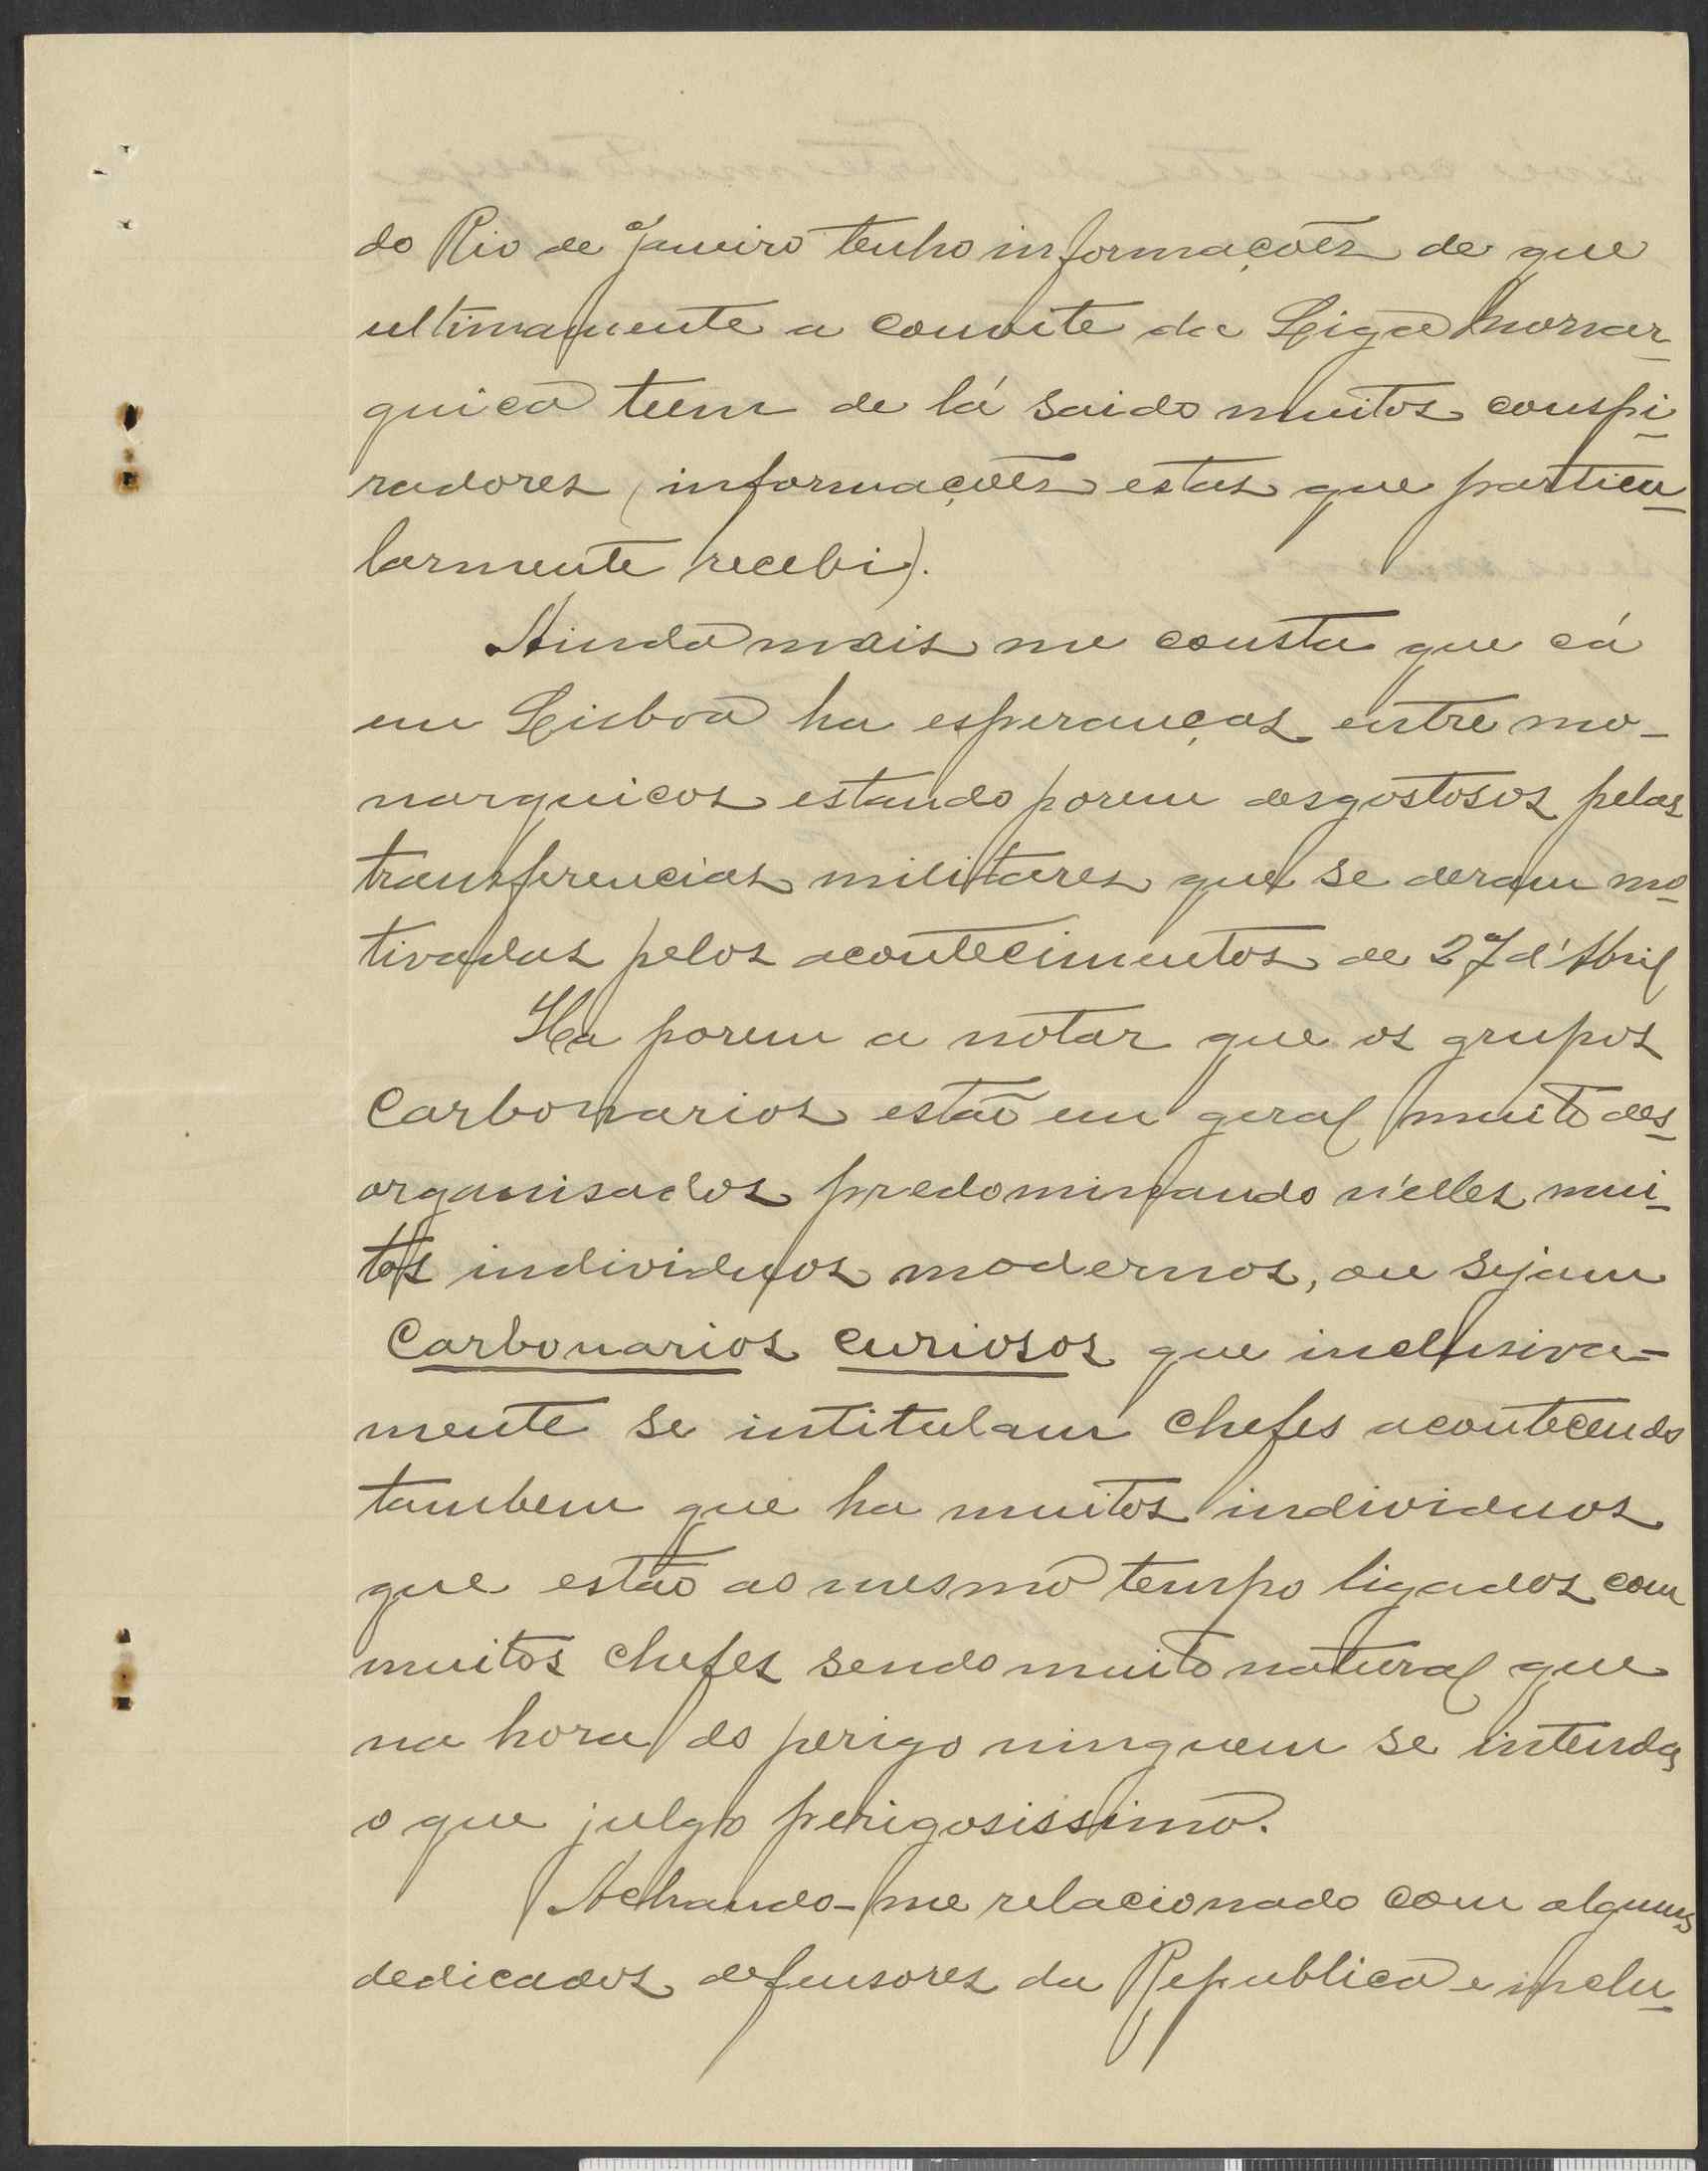 do Rio de Janeiro tenho informações de que
ultimamente a convite da Liga Monar-
quica teem de lá saido muitos conspi-
radores (informações estas que particu-
larmente recebi).
Ainda mais me consta que cá
em Lisboa ha esperanças entre mo-
narquicos estando porem desgostosos pelas
transferencias militares que se deram mo-
tivadas pelos acontecimentos de 27 d'Abril
Ha porem a notar que os grupos
Carbonarios estão em geral muito des-
organisados predominando n'elles mui-
tos individuos modernos, ou sejam
Carbonarios curiosos que inclusiva-
mente se intitulam chefes acontecendo
tambem que ha muitos individuos
que estão ao mesmo tempo ligados com
muitos chefes sendo muito natural que
na hora do perigo ninguem se intenda,
o que julgo perigosissimo.
Achando-me relacionado com alguns
dedicados defensores da Republica e inclu-